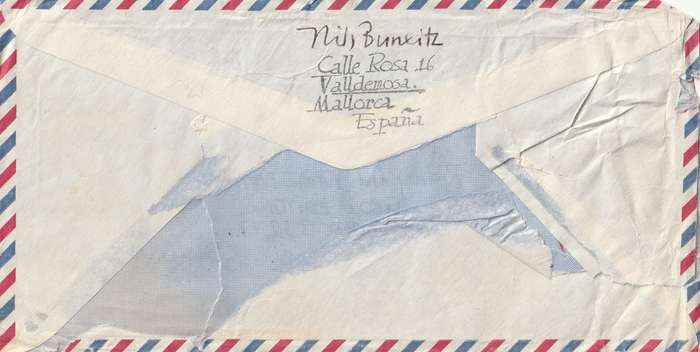 Nils Burwitz
Calle Rosa 16
Valldemosa.
Mallorca
España